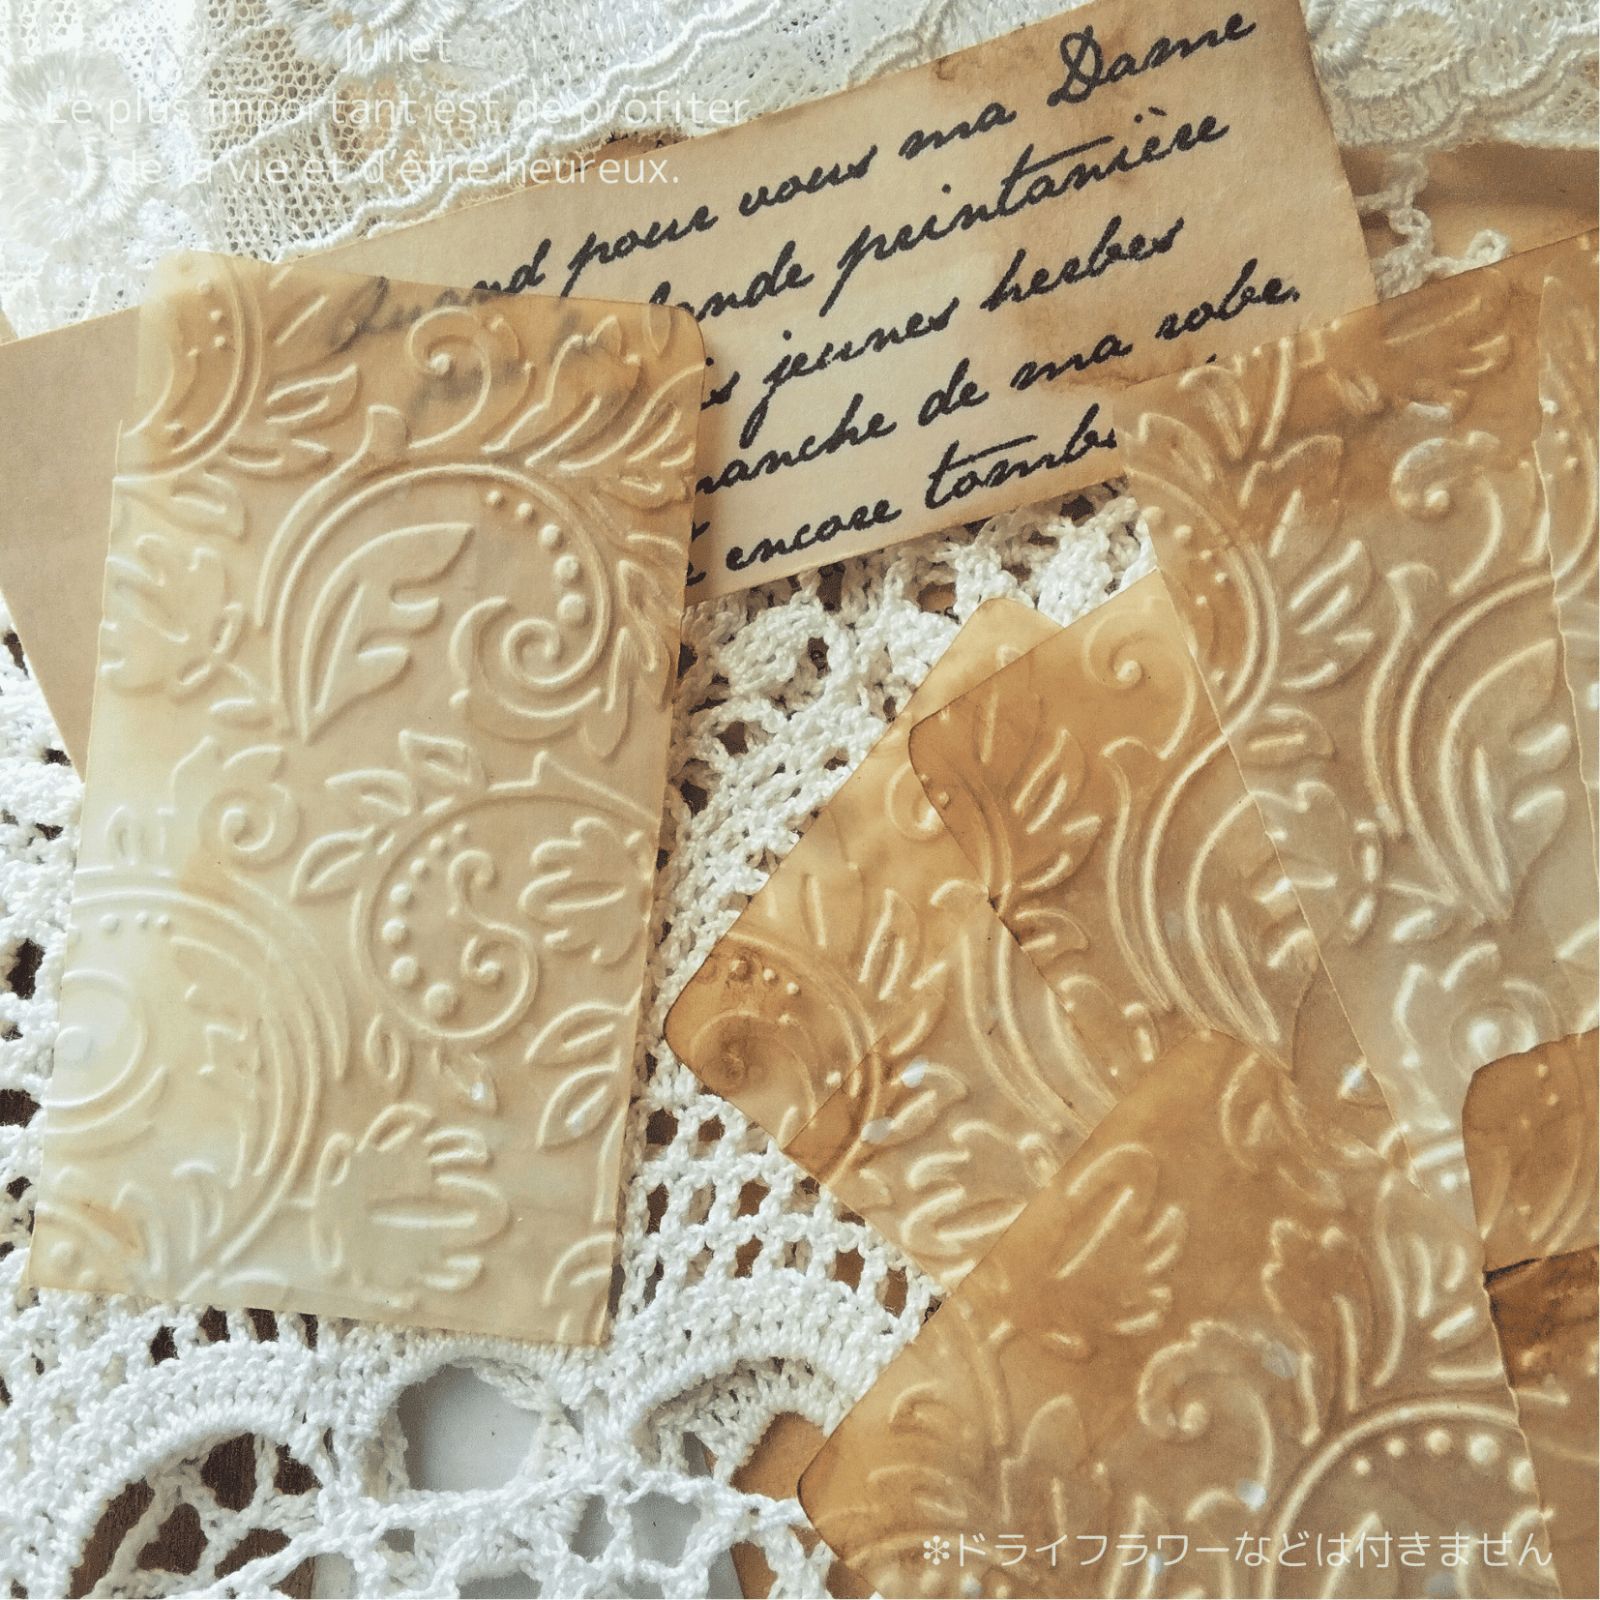 Juliet
Le plus important est de profiter
de la vie et d'être heureux.
Quand pour vous ma Dame
lande printanière
jeunes herbes
manche de ma robe.
encore tombe
❇ドライフラワーなどは付きません